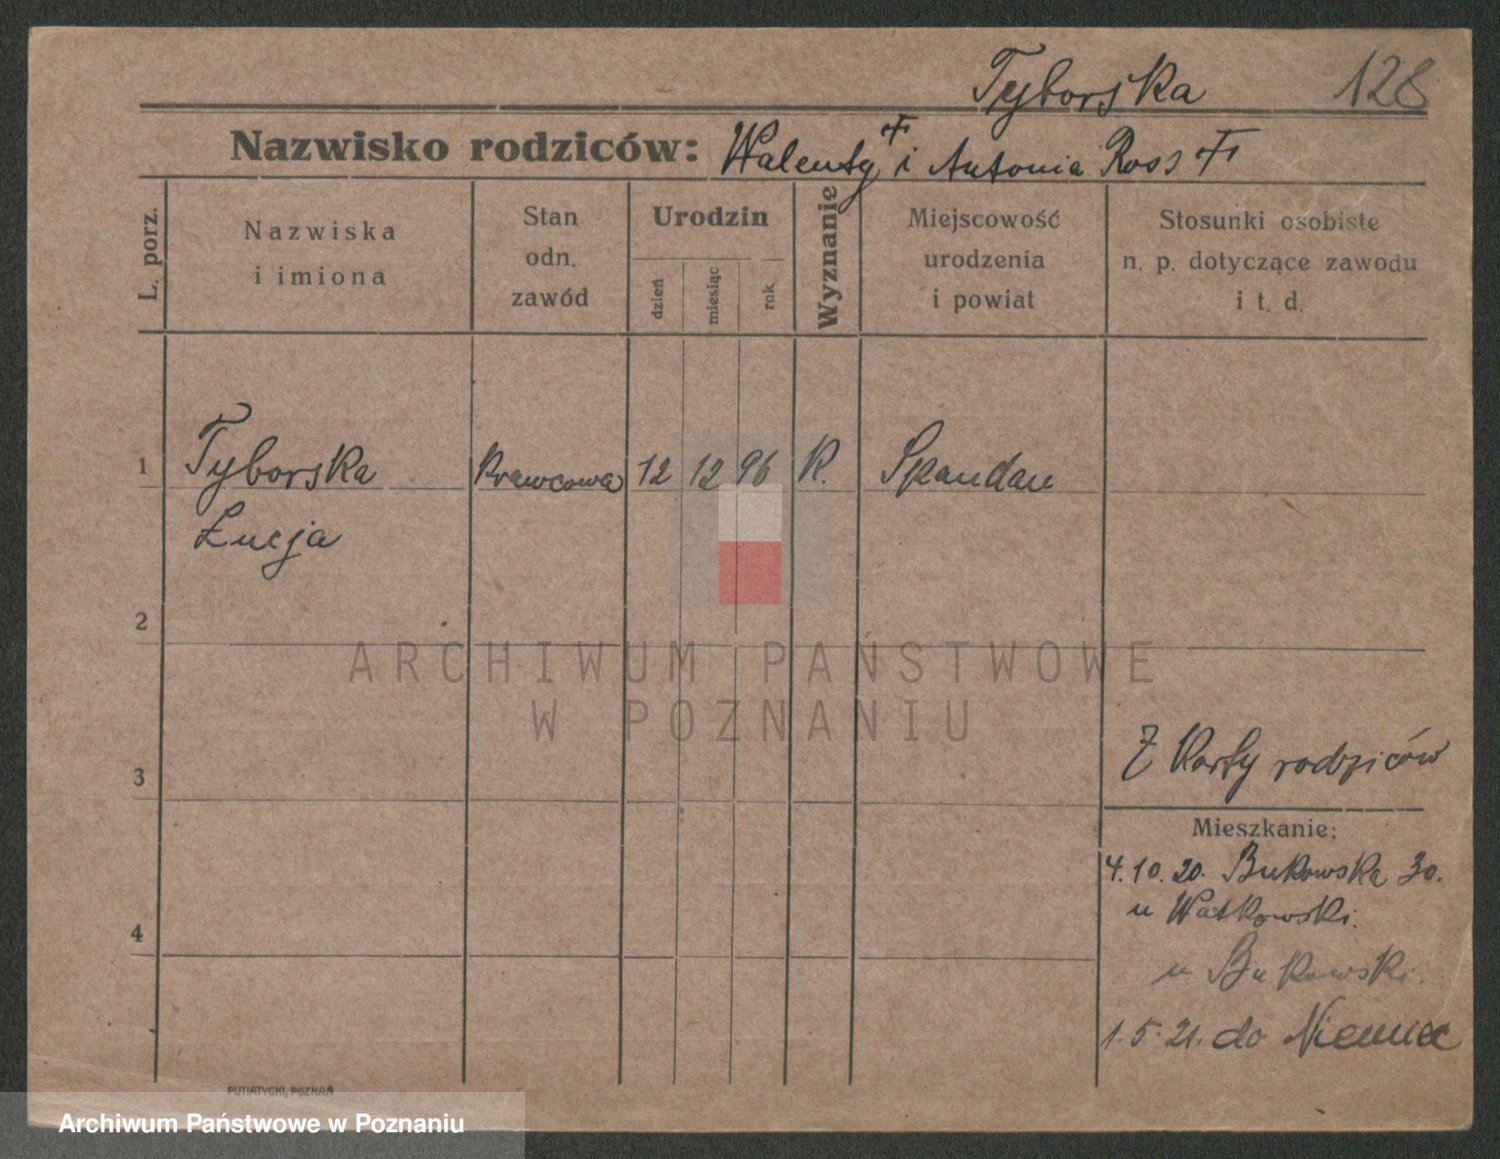 Tyborska 128
Nazwisko rodziców: Walenty ✝ i Antonia Ross ✝
L. porz.
Nazwiska
i imiona
Stan
odn.
zawód
Urodzin
dzień
miesiąc
rok
Wyznanie
Miejscowość
urodzenia
i powiat
Stosunki osobiste
n. p. dotyczące zawodu
i t. d.
1 Tyborska Krawcowa 12 12 96 R. Spandau
Łucja
2
ARCHIWUM PAŃSTWOWE
W POZNANIU
Z Karty rodziców
3
Mieszkanie:
4. 10. 20. Bukowska 30.
u Watkowski.
4
u Bukowski.
1. 5. 21. do Niemiec
PUTIATYCKI, POZNAŃ
Archiwum Państwowe w Poznaniu